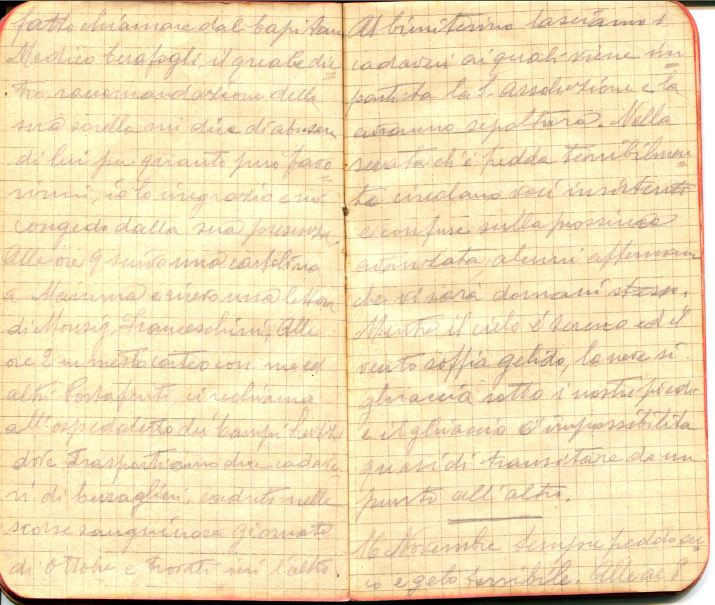 fatto chiamare dal Capitan
Medico il quale die
tro raccomandazione della
sua sorella mi dice di abusare
di lui per quanto può favo
rirmi, io lo ringrazio e mi
congedo dalla sua presenza.
Alle ore 9 scrivo una cartolina
a Mamma e ricevo una lettera
di Monsig. Franceschini, Alle
ore 2 in mesto corteo con me ed
altri Portaferiti ci rechiamo
all'ospedaletto dei Campi
dove trasportiamo due cadave
ri di bersaglieri, caduti nelle
scorse sanguinose giornate
di ottobre e trovati ieri l'altro
Al Cimiterino lasciamo i
cadaveri ai quali viene im
partita la S. Assoluzione e la
avranno sepoltura. Nella
serata ch'è fredda terribilmen
te circolano voci insistenti
e confuse sulla prossima
avanzata, alcuni affermano
che vi sarà domani stesso.
Mentre il cielo è sereno ed il
vento soffia gelido, la neve si
ghiaccia sotto i nostri piedi
e il ghiaccio c'impossibilita
quasi di transitare da un
punto all'altro.
16 Novembre Sempre freddo acu
to e gelo terribile. Alle ore 8